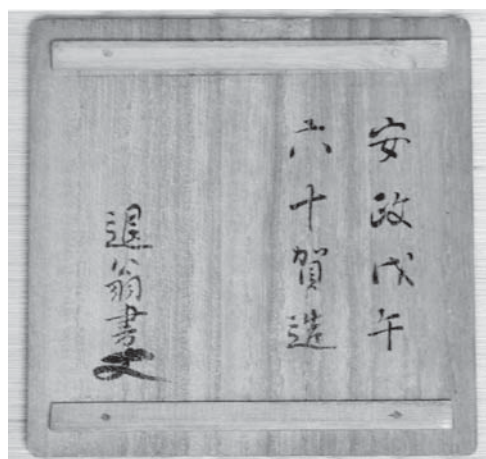 安政戊午
六十賀選
退翁書